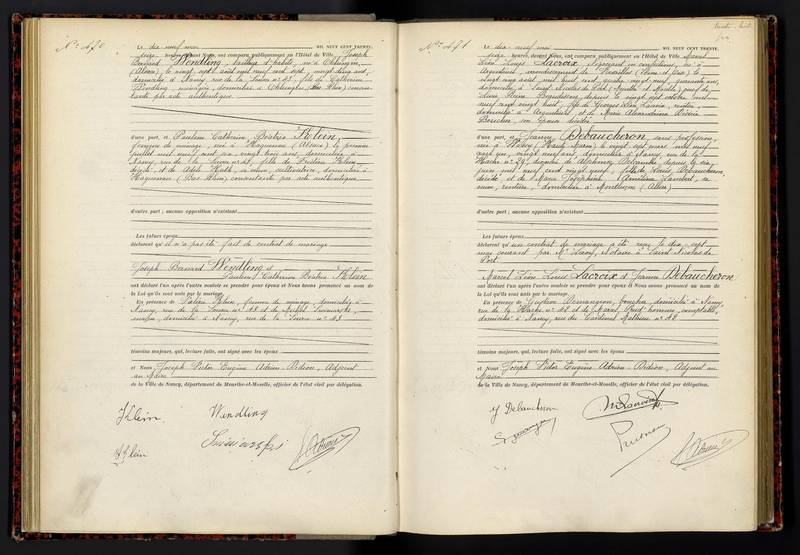 N° 470
Le dix neuf mai MIL NEUF CENT TRENTE,
seize heures, devant Nous, ont comparu publiquement en l'Hôtel de Ville Joseph
Bernard Wendling, tailleur d'habits, né à Ohlungen,
(Alsace), le vingt sept août mil neuf cent sept, vingt deux ans,
domicilié à Nancy, rue de la Source n° 43, fils de Catherine
Wendling, ménagère, domiciliée à Ohlungen (Bas Rhin) consen-
tante par acte authentique.
d'une part, et Pauline Catherine Béatrice Klein,
femme de ménage, née à Haguenau (Alsace) le premier
juillet mil neuf cent six, vingt trois ans, domiciliée à
Nancy, rue de la Source n° 43, fille de Frédéric Klein,
décédé, et de Adèle Huth, sa veuve, cultivatrice, domiciliée à
Haguenau (Bas Rhin) consentante par acte authentique.
d'autre part ; aucune opposition n'existant
Les futurs époux
déclarent qu'il n'a pas été fait de contrat de mariage
Joseph Bernard Wendling et
Pauline Catherine Béatrice Klein
ont déclaré l'un après l'autre vouloir se prendre pour époux et Nous avons prononcé au nom de
la Loi qu'ils sont unis par le mariage.
En présence de Valérie Klein, femme de ménage, domiciliée à
Nancy, rue de la Source n° 43 et de Michel
domicilié à Nancy, rue de la Source n° 43
témoins majeurs, qui, lecture faite, ont signé avec les époux
et Nous Joseph Victor Eugène Adrien Bidion, Adjoint
au Maire
de la Ville de Nancy, département de Meurthe-et-Moselle, officier de l'état civil par délégation.
Klein Wendling
Klein
N° 471
Le dix neuf mai MIL NEUF CENT TRENTE,
seize heures, devant Nous, ont comparu publiquement en l'Hôtel de Ville Marcel
Léon Louis Lacroix, négociant en confections, né à
Argenteuil, arrondissement de Versailles (Seine et Oise) le
vingt cinq août mil huit cent quatre vingt neuf, quarante ans,
domicilié à Saint Nicolas de Port (Meurthe et Moselle) veuf de
depuis le vingt sept octobre mil
neuf cent vingt huit, fils de Georges Léon Lacroix, rentier,
domicilié à Argenteuil, et de Marie Alexandrine
son épouse décédée
d'une part, et Jeanne Debaucheron, sans profession,
née à Wassy (Haute Marne) le vingt sept mars mil neuf
cent un, vingt neuf ans, domiciliée à Nancy, rue de la
Hache n° 48, divorcée de Alphonse depuis le six
juin mil neuf cent vingt neuf, fille de Louis Debaucheron,
décédé et de Marie Joséphine Lambert, sa
veuve, rentière, domiciliée à Montluçon (Allier)
d'autre part ; aucune opposition n'existant
Les futurs époux
déclarent qu'un contrat de mariage a été reçu le dix sept
mai courant par Me notaire à Saint Nicolas de
Port
Marcel Léon Louis Lacroix et Jeanne Debaucheron
ont déclaré l'un après l'autre vouloir se prendre pour époux et Nous avons prononcé au nom de
la Loi qu'ils sont unis par le mariage.
En présence de boucher, domicilié à Nancy,
rue de la Hache n° 48 et de Marcel Prud'homme, comptable,
domicilié à Nancy, rue du Cardinal Mathieu n° 49
témoins majeurs, qui, lecture faite, ont signé avec les époux
et Nous Joseph Victor Eugène Adrien Bidion, Adjoint au
Maire
de la Ville de Nancy, département de Meurthe-et-Moselle, officier de l'état civil par délégation.
J Debaucheron